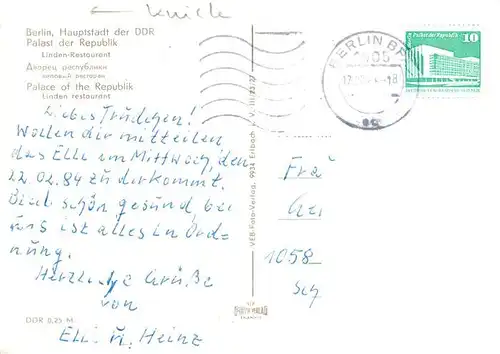 ← Knick
Berlin, Hauptstadt der DDR
Palast der Republik
Linden-Restaurant
Дворец республики
Palace of the Republik
Linden restaurant
Liebes Trudchen!
Wollen dir mitteilen
das Elli am Mittwoch, den
22.02.84 zu dir kommt.
Bleib schön gesund, bei
uns ist alles in Ord-
nung.
Herzliche Grüße
von
Elli u. Heinz
DDR 0,25 M
VEB-Foto-Verlag, 9934 Erlbach
BERLIN
10
Palast der Republik
DDR
Frau
1058
Sch